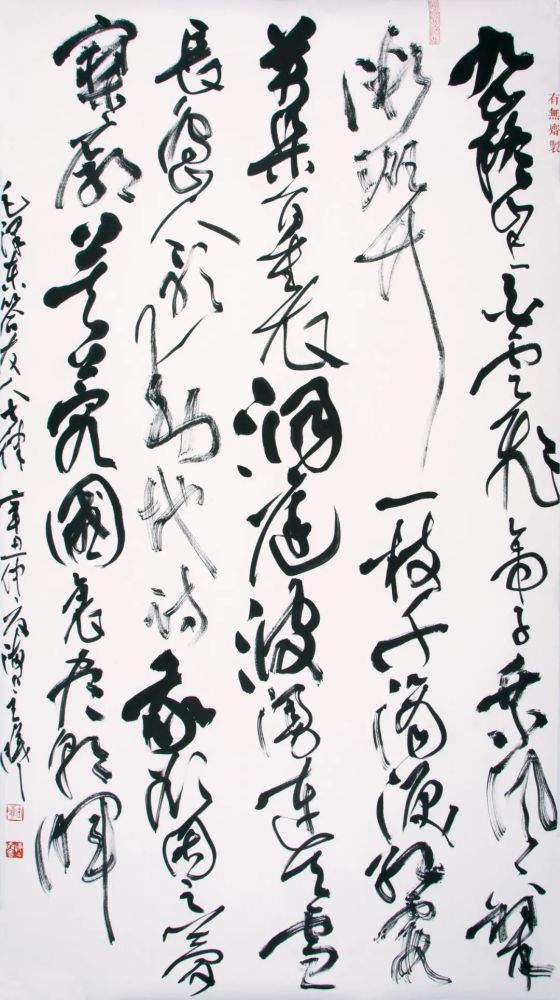 有無齋製
九嶷山上白雲飛帝子乘風下翠
微斑竹一枝千滴淚紅霞
萬朵百重衣洞庭波湧連天雪
長島人歌動地詩我欲因之夢
寥廓芙蓉國裏盡朝暉
毛澤東答友人七律 辛丑仲